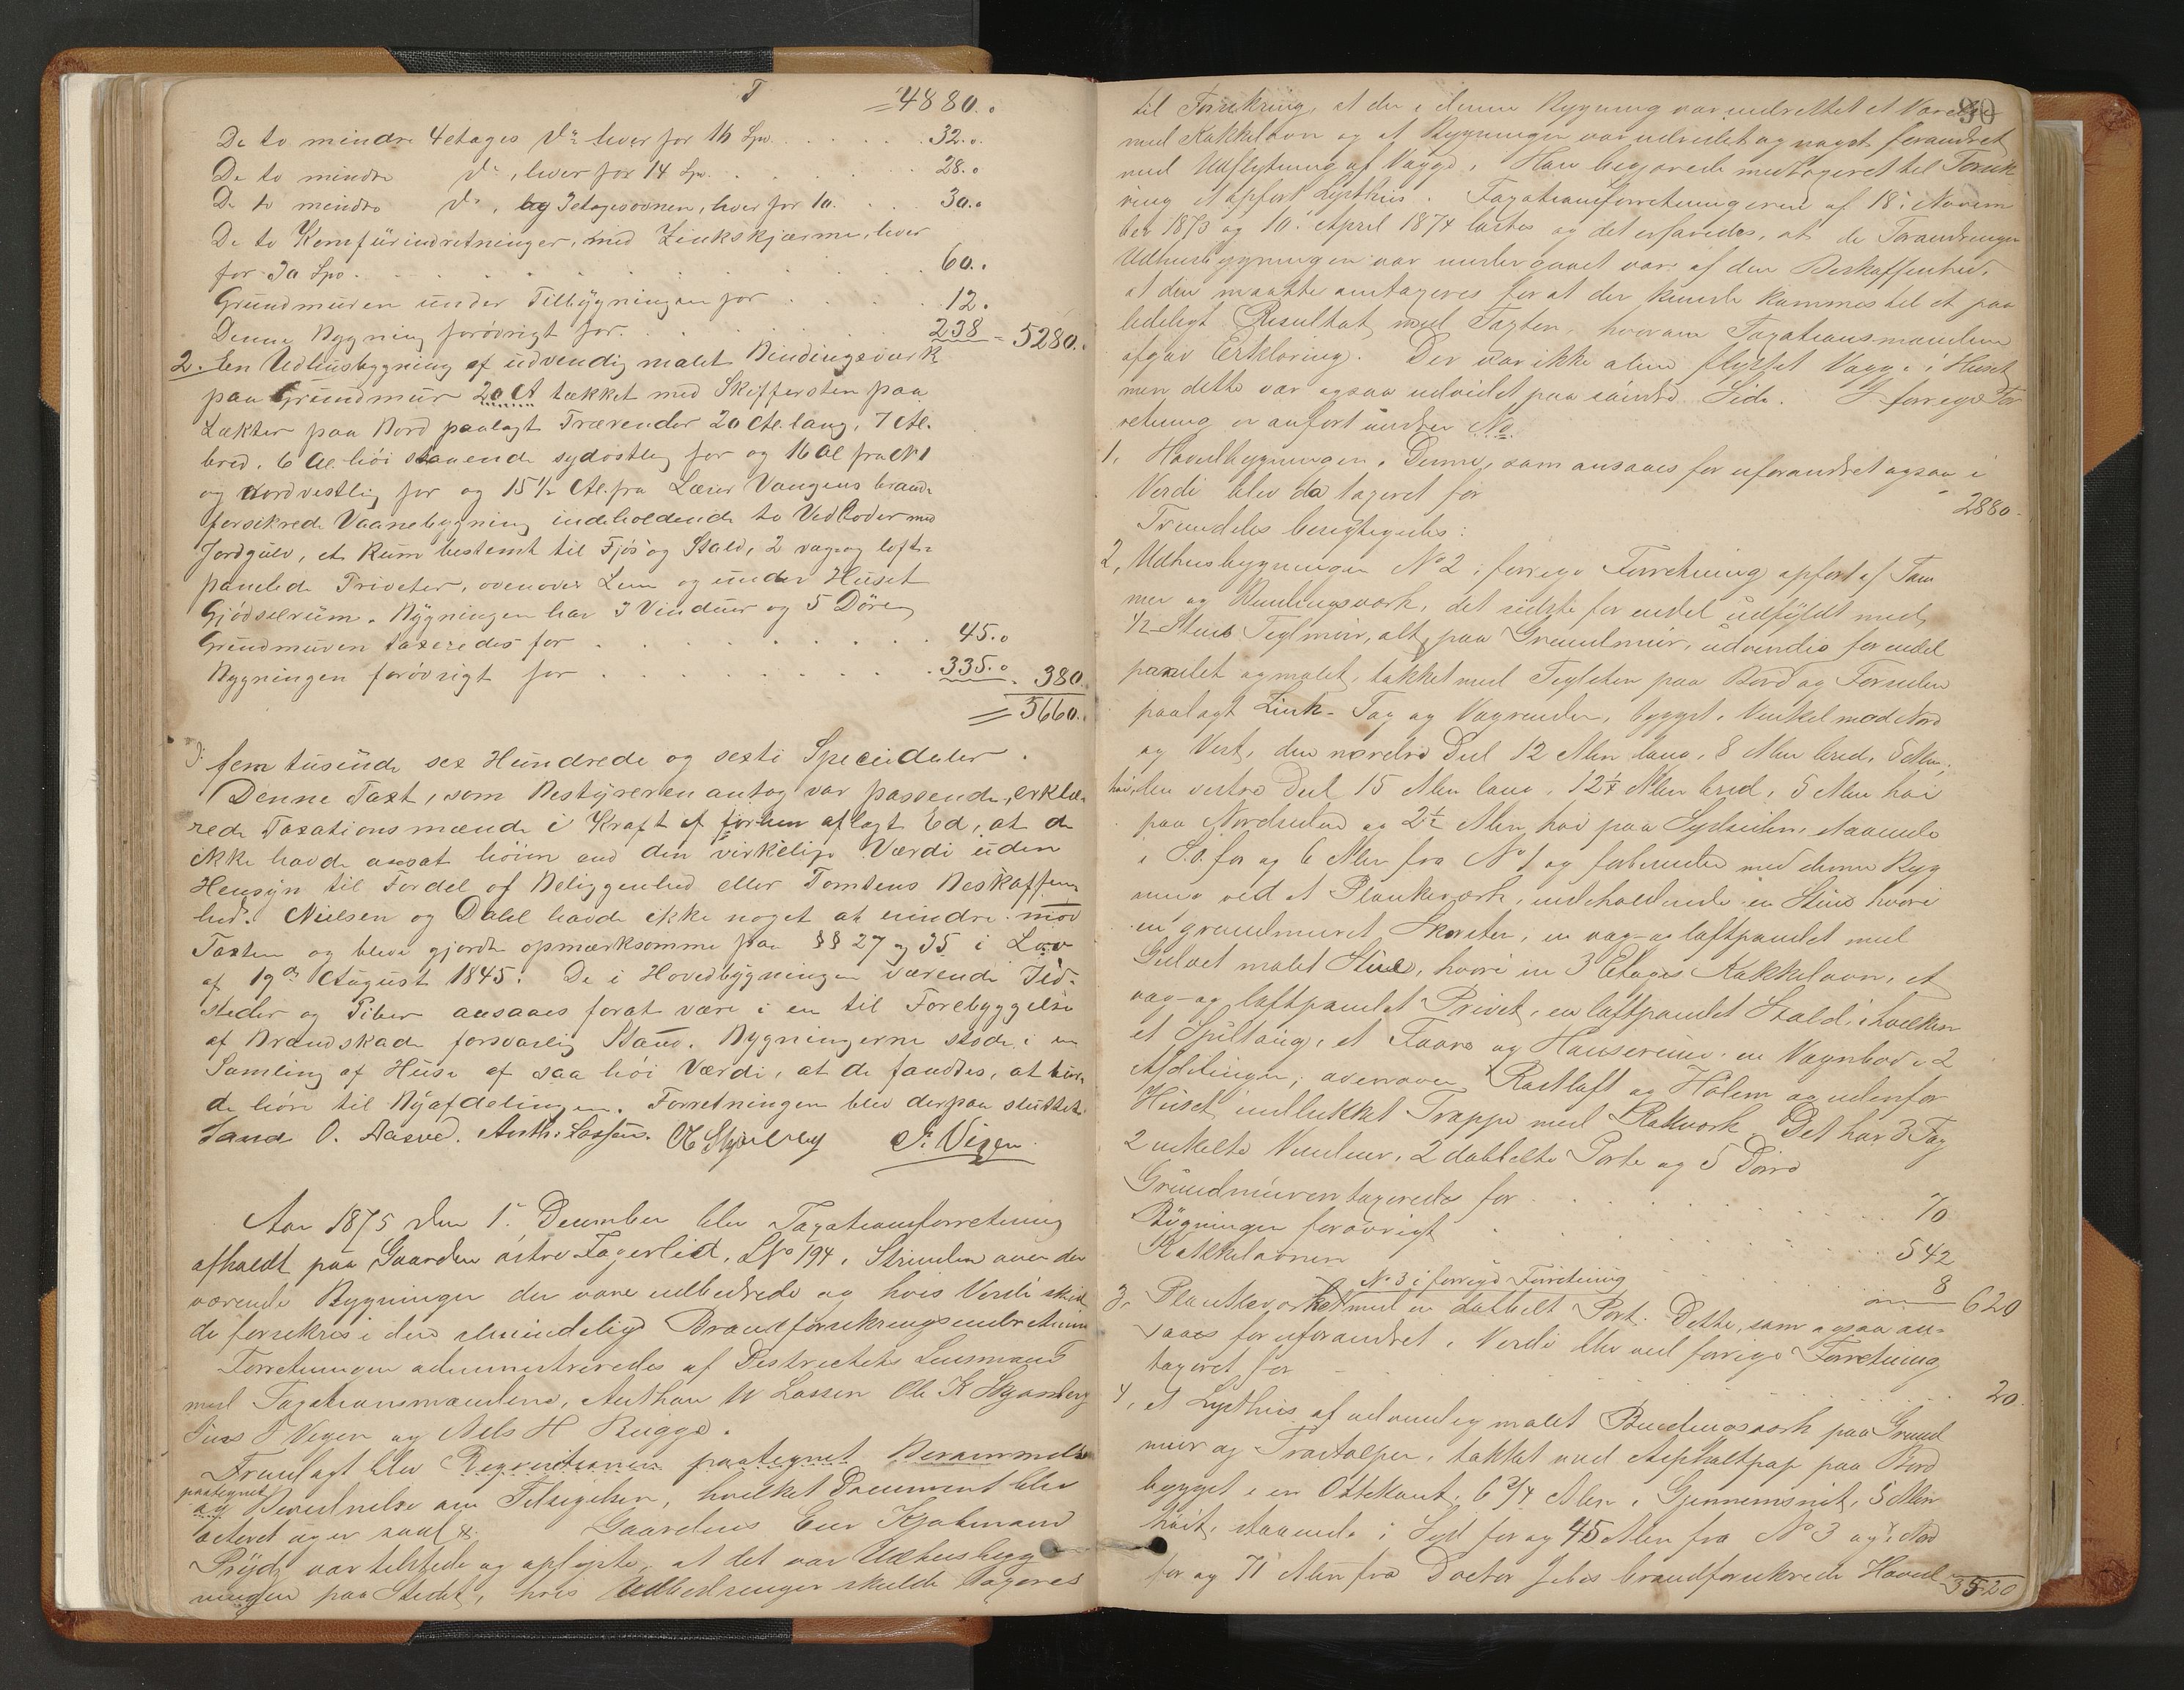 T = 4880..
De to mindre 4etages do hver for 16 Spd. 32..
De to mindre do, hver for 14 Spd. 28..
De to mindre do, og 3etagesovnen, hver for 10. 30..
De to Komfürindretninger, med Zinkskjærme, hver
for 30 Spd. 60..
Grundmuren under Tilbygningen for 12.
Denne Bygning forövrigt for. 238 = 5280..
2. En Udhusbygning af udvendig malet Bindingsværk
paa Grundmur 20 A tækket med Skiffersten paa
Lækter paa Bord paalagt Trærender 20 Al. lang, 7 Al.
bred, 6 Al. höi staaende sydostlig for og 16 Al fra No 1
og nordvestlig for og 15 1/2 Al. fra Lærer Vangens brand-
forsikrede Vaanebygning indeholdende to Vedboder med
Jordgulv, et Rum bestemt til Fjös og Stald, 2 væg og lofts
panelede Priveter, ovenover Lem og under Huset
Gjödselrüm. Bygningen har 3 Vinduer og 5 Döre
Grundmuren taxeredes for 45..
Bygningen forövrigt for 335.. 380.
= 5660..
): fem tusinde sex Hundrede og sexti Speciedaler.
Denne Taxt, som Bestyreren antog var passende, erklæ-
rede Taxationsmænde i Kraft af forhen aflagt Ed, at de
ikke havde ansat höiere end den virkelige Værdi uden
Hensyn til Fordel af Beliggenhed eller Tomtens Beskaffen-
hed. Nielsen og Dahl havde ikke noget at erindre mod
Taxten og bleve gjordt opmærksomme paa §§ 27 og 35 i Lov
af 19de August 1845. De i Hovedbygningen værende Ild-
steder og Piber ansaaes forat være i en til Forebyggelse
af Brandskade forsvarlig Stand. Bygningerne stode i en
Samling af Huse af saa höi Værdi, at de fandtes, at bur-
de höre til Byafdelingen. Forretningen blev derpaa sluttet.
Sand O. Aasved. Anth: Lassen. J. Vigen
Aar 1875 den 1ste December blev Taxationsforretning
afholdt paa Gaarden östre Fagerlied, LNo 194, Strinden over der
værende Bygninger der vare udbedrede og hvis Verdi skul
de forsikres i den almindelige Brandforsikringsindretning
Forretningen administreredes af Districtets Lensmand
med Taxationsmændene, Anthon W Lassen Ole K Skjølberg
Jens J Vigen og Nels H Rügge.
Fremlagt blev Requisitionen paategnet Berammelse
paategnet
og Bevidnelse om Tilsigelsen, hvilket Document blev
acteret og er saal. Gaardens Eier Kjøbmand
Pryds var tilstede og oplyste, at det var Udhusbyg
ningen paa Stedet, hvis Udbedringer skulde taxeres
90
til Forsikring, at der i denne Bygning var indrettet et Værelse
med Kakkelovn og at Bygningen var udvidet og noget forandret
med Udflytning af Vægge. Han begjærede medtageret til Forsik
ring et opført Lysthus. Taxationsforretningerne af 18de Novem
ber 1873 og 10de April 1874 læstes og det erfaredes, at de Forandringer
Udhusbygningen var undergaaet vare af den Beskaffenhed,
at den maatte omtaxeres for at der kunde kommes til et paa
lideligt Resultat med Taxten, hvorom Taxationsmændene
afgav Erklæring. Der var ikke alene flyttet Vægge i Huset
men dette var ogsaa udvidet paa søndre Side. I forrige For
retning er anført under No
1, Hovedbygningen. Denne, som ansaaes for uforandret ogsaa i
Verdi blev da taxeret for 2880.
Fremdeles besigtigedes:
2, Udhusbygningen No 2 i forrige Forretning opført af Tøm
mer og Bindingsverk, det sidste for endel udfyldt med
1/2 Stens Teglmur, alt paa Grundmur, udvendig for endel
panelet og malet, tækket med Teglsten paa Bord og Forsiden
paalagt Zink-Tag og Tagrender, bygget i Vinkel mod Nord
og Vest, den nordre Del 12 Alen lang, 8 Alen bred, 5 Alen
høi, den vestre Del 15 Alen lang, 12 1/2 Alen bred, 5 Alen høi
paa Nordsiden og 2 1/2 Alen høi paa Sydsiden, staaende
i S.O. for og 6 Alen fra No 1 og forbunden med denne Byg
ning ved et Plankeværk, indeholdende en Stue hvori
en grundmuret Skorsten, en væg- og loftpanelet med
Gulvet malet Stue, hvori en 3 Etages Kakkelovn, et
væg- og loftpanelet Privet, en loftpanelet Stald, i hvilken
et Spiltoug, et Faare og Hønserum, en Vognbod i 2
Afdelinger, ovenover Rastloft og Hølem og udenfor
Huset indlukket Trappe med Rækverk. Det har 3 Fag
2 enkelte Vinduer, 2 dobbelte Porte og 5 Døre
Grundmuren taxeredes for 70
Bygningen forøvrigt 542
Kakkelovnen 8 620
No 3 i forrige Forretning
3, Plankeværket med en dobbelt Port. Dette, som ogsaa an-
saaes for uforandret i Verdi blev ved forrige Forretning
taxeret for 20.
4, et Lysthus af udvendig malet Bindingsverk paa Grund
mur og Træstolper, tækket med Asphaltpap paa Bord
bygget i en Ottekant, 6 3/4 Alen i Gjennemsnit, 5 Alen
høit, staaende i Syd for og 45 Alen fra No 3 og i Nord
for og 71 Alen fra Doctor brandforsikrede Hoved
3520